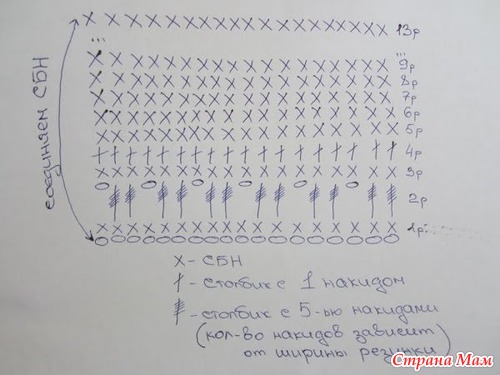 13р
...
...
9р
8р
7р
6р
5р
4р
3р
2р
1р
соединяем СБН
х - СБН
- столбик с 1 накидом
- столбик с 5-ью накидами
(кол-во накидов зависит
от ширины резинки)
Страна Мам